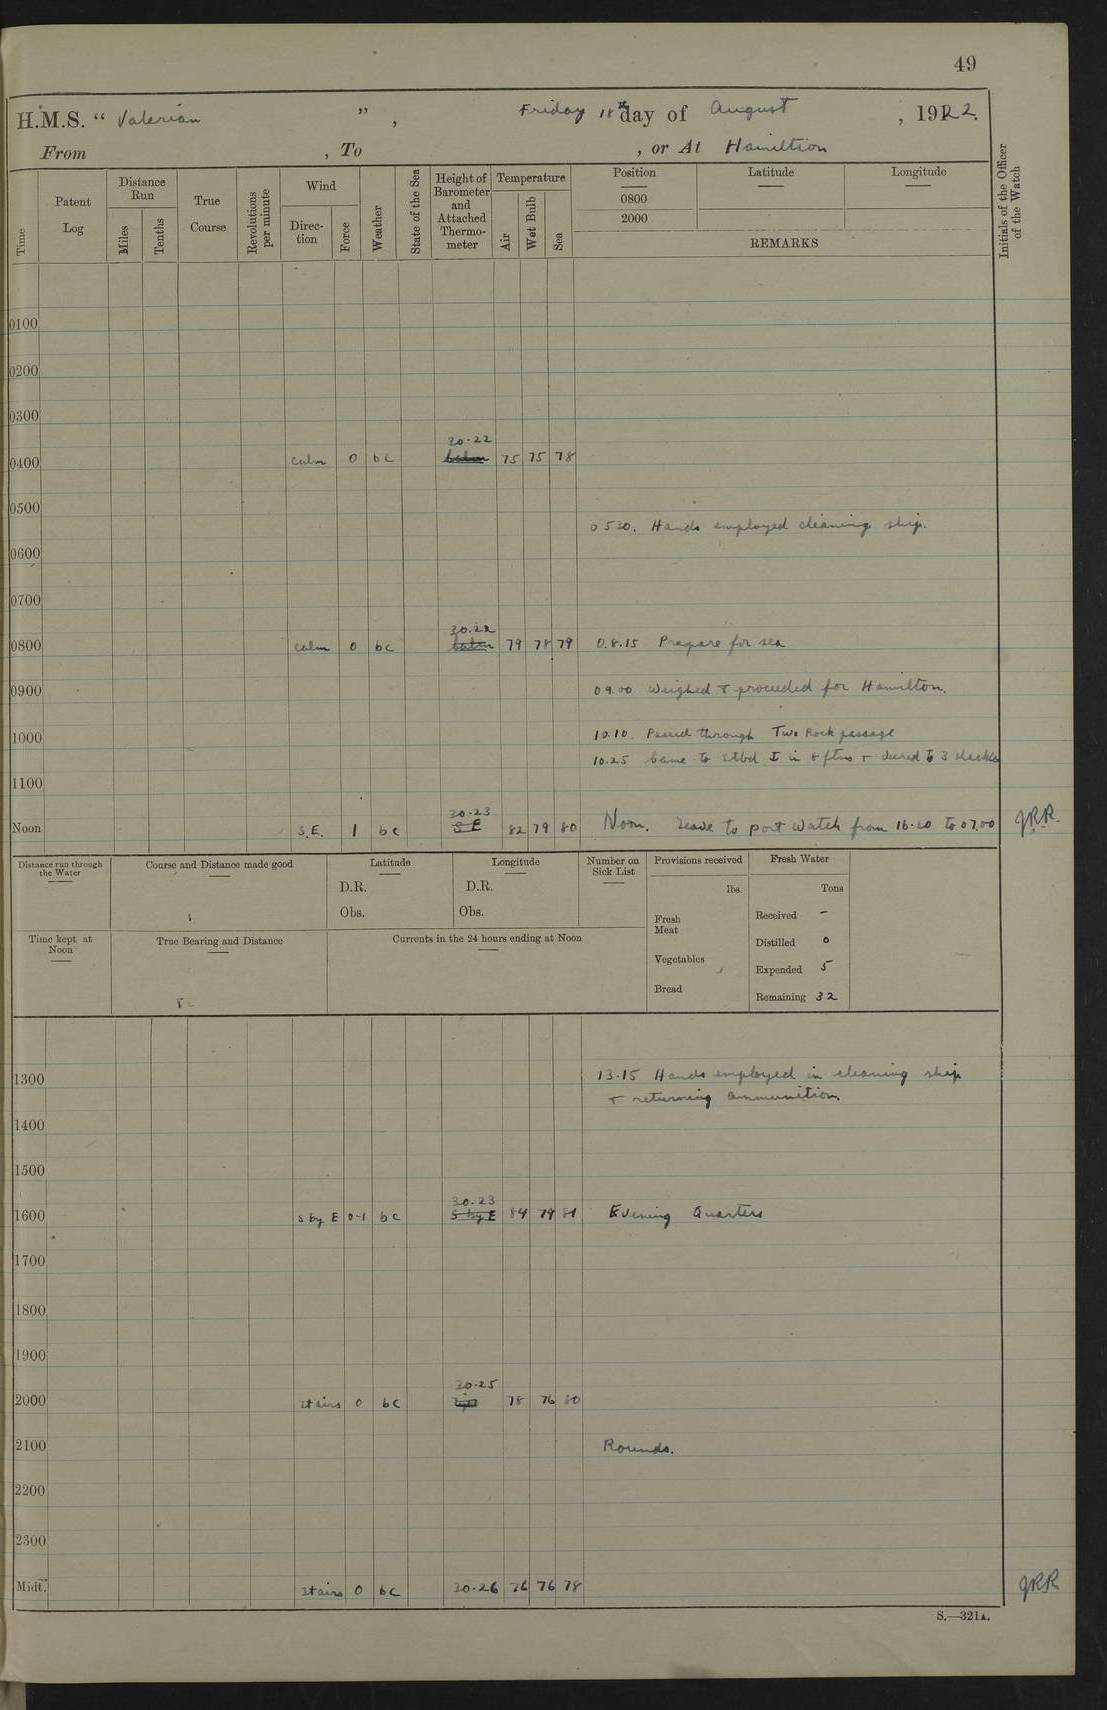 49
H.M.S. “ Valerian ” , Friday 18th day of August , 1922.
From , To , or At Hamilton
Time
Patent Log
Distance Run
Miles
Tenths
True Course
Revolutions per minute
Wind
Direc-tion
Force
Weather
State of the Sea
Height of Barometer and Attached Thermo-meter
Temperature
Air
Wet Bulb
Sea
Position
0800
2000
Latitude
Longitude
REMARKS
Initials of the Officer of the Watch
0100
0200
0300
30.22
0400 calm 0 bc 75 75 78
0500
0530. Hands employed cleaning ship.
0600
0700
30.22
0800 calm 0 bc 79 78 79 0.8.15 Prepare for sea
0900 09.00 Weighed & proceeded for Hamilton.
1000 10.10. Passed through Two Rock passage
10.25 Came to stbd in 8 fms & veered to 3 shackles
1100
30.23
Noon S.E. 1 bc S E 82 79 80 Noon. Leave to port watch from 16.20 to 07.00 JRR.
Distance run through the Water
Course and Distance made good
Latitude
D.R.
Obs.
Longitude
D.R.
Obs.
Number on Sick List
Provisions received
lbs.
Fresh Meat
Vegetables
Bread
Fresh Water
Tons
Received –
Distilled 0
Expended 5
Remaining 32
Time kept at Noon
True Bearing and Distance
Currents in the 24 hours ending at Noon
1300 13.15 Hands employed in cleaning ship
& returning ammunition.
1400
1500
30.23
1600 S by E 0-1 bc S by E 84 79 81 Evening Quarters
1700
1800
1900
30.25
2000 stairs 0 bc 78 76 80
2100 Rounds.
2200
2300
Midt. stairs 0 bc 30.26 76 76 78 JRR
S.—321A.